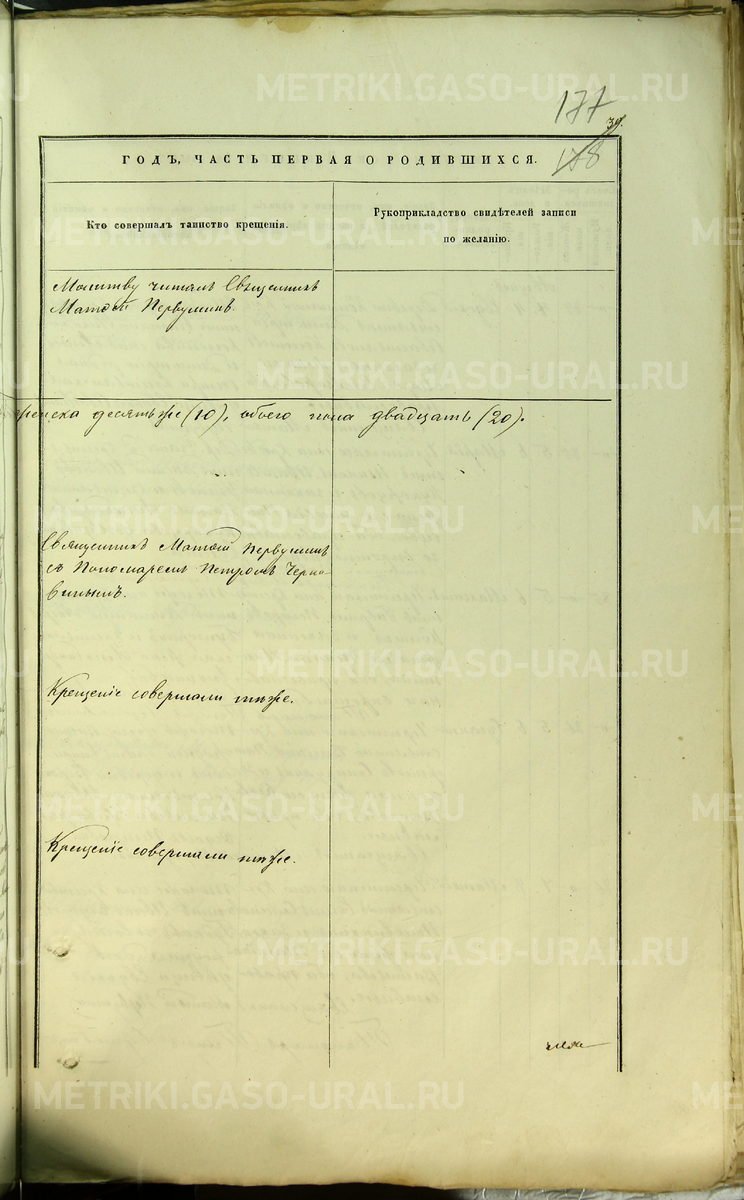 METRIKI.GASO-URAL.RU
177
39.
178
ГОДЪ, ЧАСТЬ ПЕРВАЯ О РОДИВШИХСЯ.
Кто совершалъ таинство крещенія.
Рукоприкладство свидѣтелей записи
по желанію.
Молитву читалъ Священникъ
Матѳій Первушинъ.
женска десять же (10), обоего пола двадцать (20).
Священникъ Матѳій Первушинъ
съ Пономаремъ Петромъ Черна-
винымъ.
Крещеніе совершали тѣже.
Крещеніе совершали тѣже.